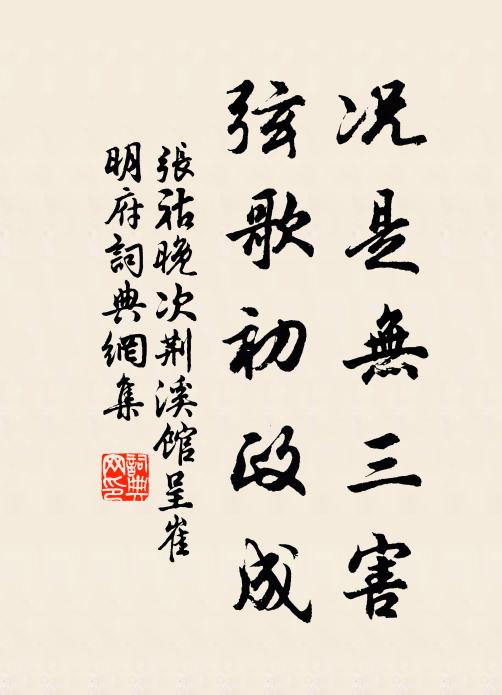 况是無三害
弦歌初政成
張祜晚次荆溪館呈崔
明府詞典網集
詞典
网印